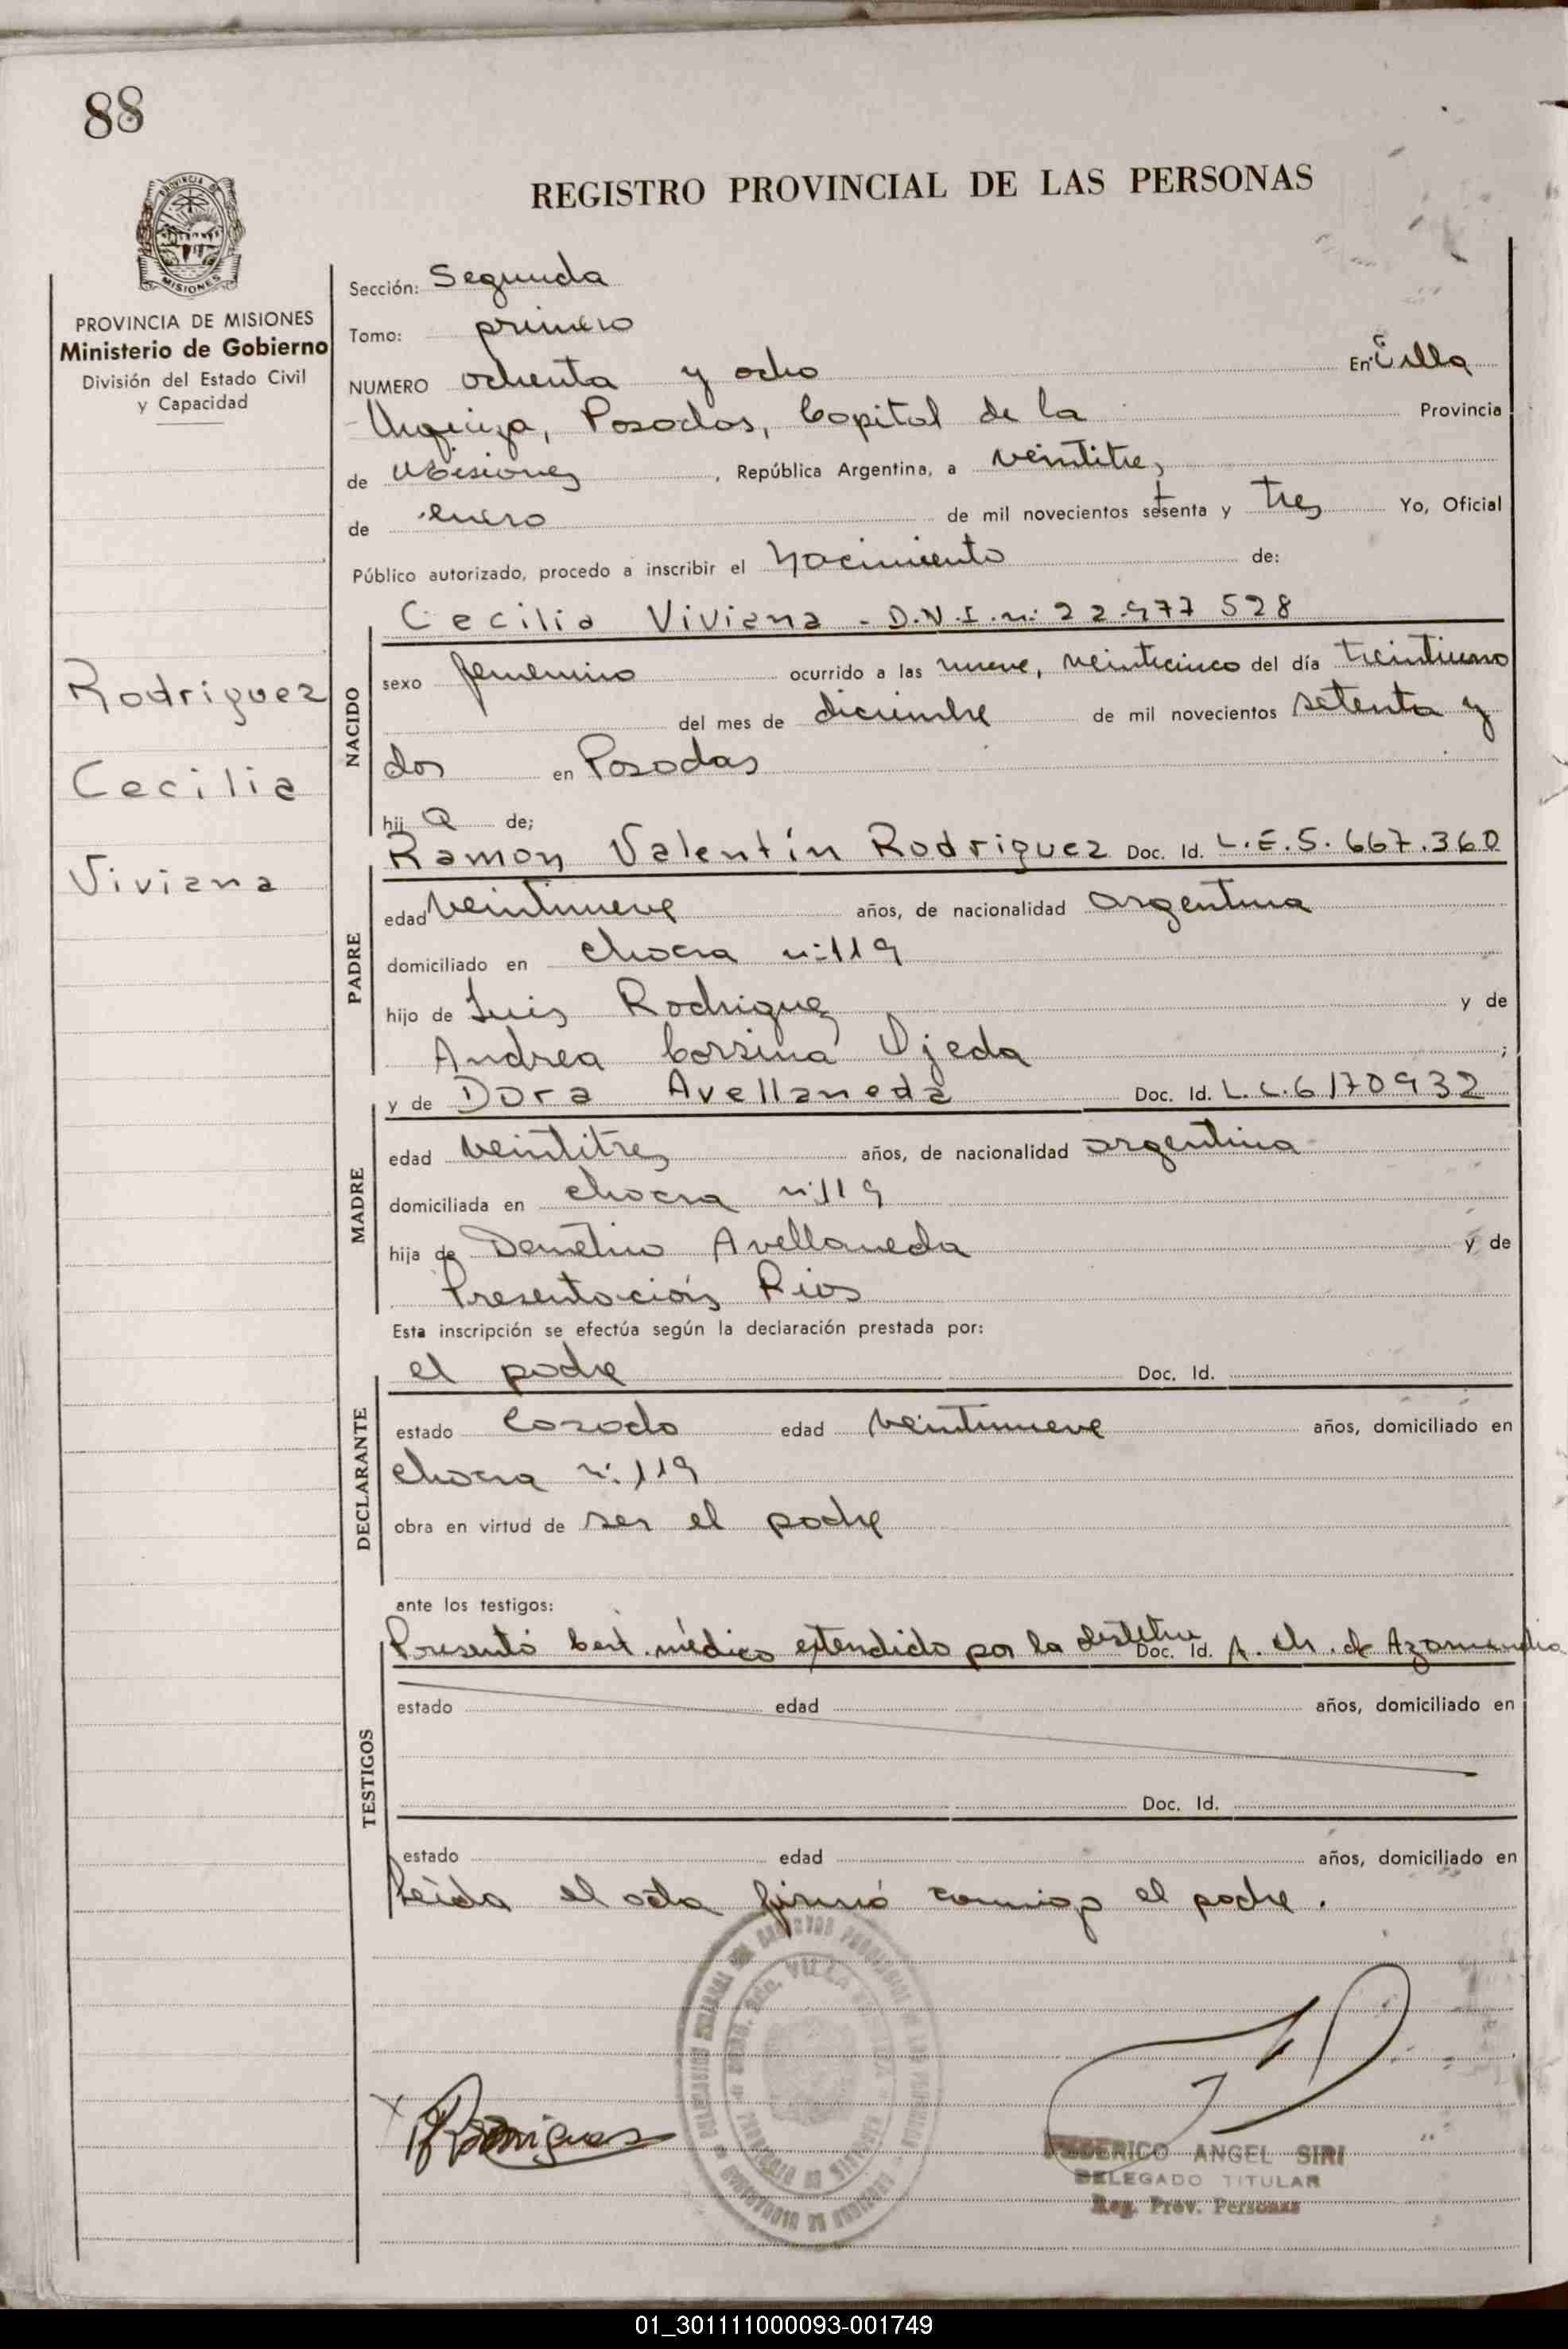 88
REGISTRO PROVINCIAL DE LAS PERSONAS
PROVINCIA DE MISIONES
MISIONES
PROVINCIA DE MISIONES
Ministerio de Gobierno
División del Estado Civil
y Capacidad
Rodriguez
Cecilia
Viviana
Sección: Segunda
Tomo: primero
NUMERO ochenta y ocho En Villa
Urquiza, Posadas, Capital de la Provincia
de Misiones, República Argentina, a veintitres
de enero de mil novecientos setenta y tres Yo, Oficial
Público autorizado, procedo a inscribir el Nacimiento de:
Cecilia Viviana - D.N.I. n: 22.977 528
NACIDO
sexo femenino ocurrido a las nueve, veinticinco del día treintiuno
del mes de diciembre de mil novecientos setenta y
dos en Posadas
hij a de;
Ramon Valentín Rodriguez Doc. Id. L.E.5.667.360
PADRE
edad veintinueve años, de nacionalidad argentina
domiciliado en chacra n:119
hijo de Luis Rodriguez y de
Andrea Corsina Ojeda ;
y de Dora Avellaneda Doc. Id. L.C.6170932
MADRE
edad veintitres años, de nacionalidad argentina
domiciliada en chacra n:119
hija de Demetrio Avellaneda y de
Presentación Rios
Esta inscripción se efectúa según la declaración prestada por:
el padre Doc. Id.
DECLARANTE
estado casado edad veintinueve años, domiciliado en
chacra n:119
obra en virtud de ser el padre
ante los testigos:
Presentó Cert. médico extendido por la Doc. Id. A. Ch. de
TESTIGOS
estado edad años, domiciliado en
Doc. Id.
estado edad años, domiciliado en
Leída el acta firmó conmigo el padre.
Rodriguez
FEDERICO ANGEL SIRI
DELEGADO TITULAR
Reg. Prov. Personas
01_301111000093-001749